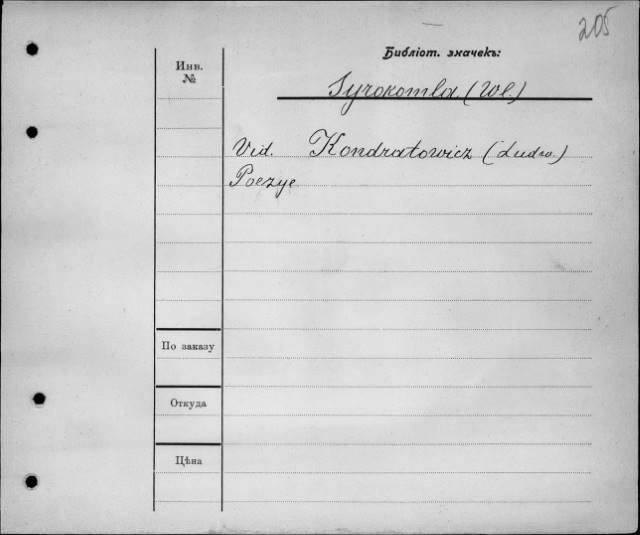 205
Библіот. значекъ:
Инв.
№
Syrokomla (Wł.)
Vid. Kondratowicz (Ludw.)
Poezye
По заказу
Откуда
Цѣна